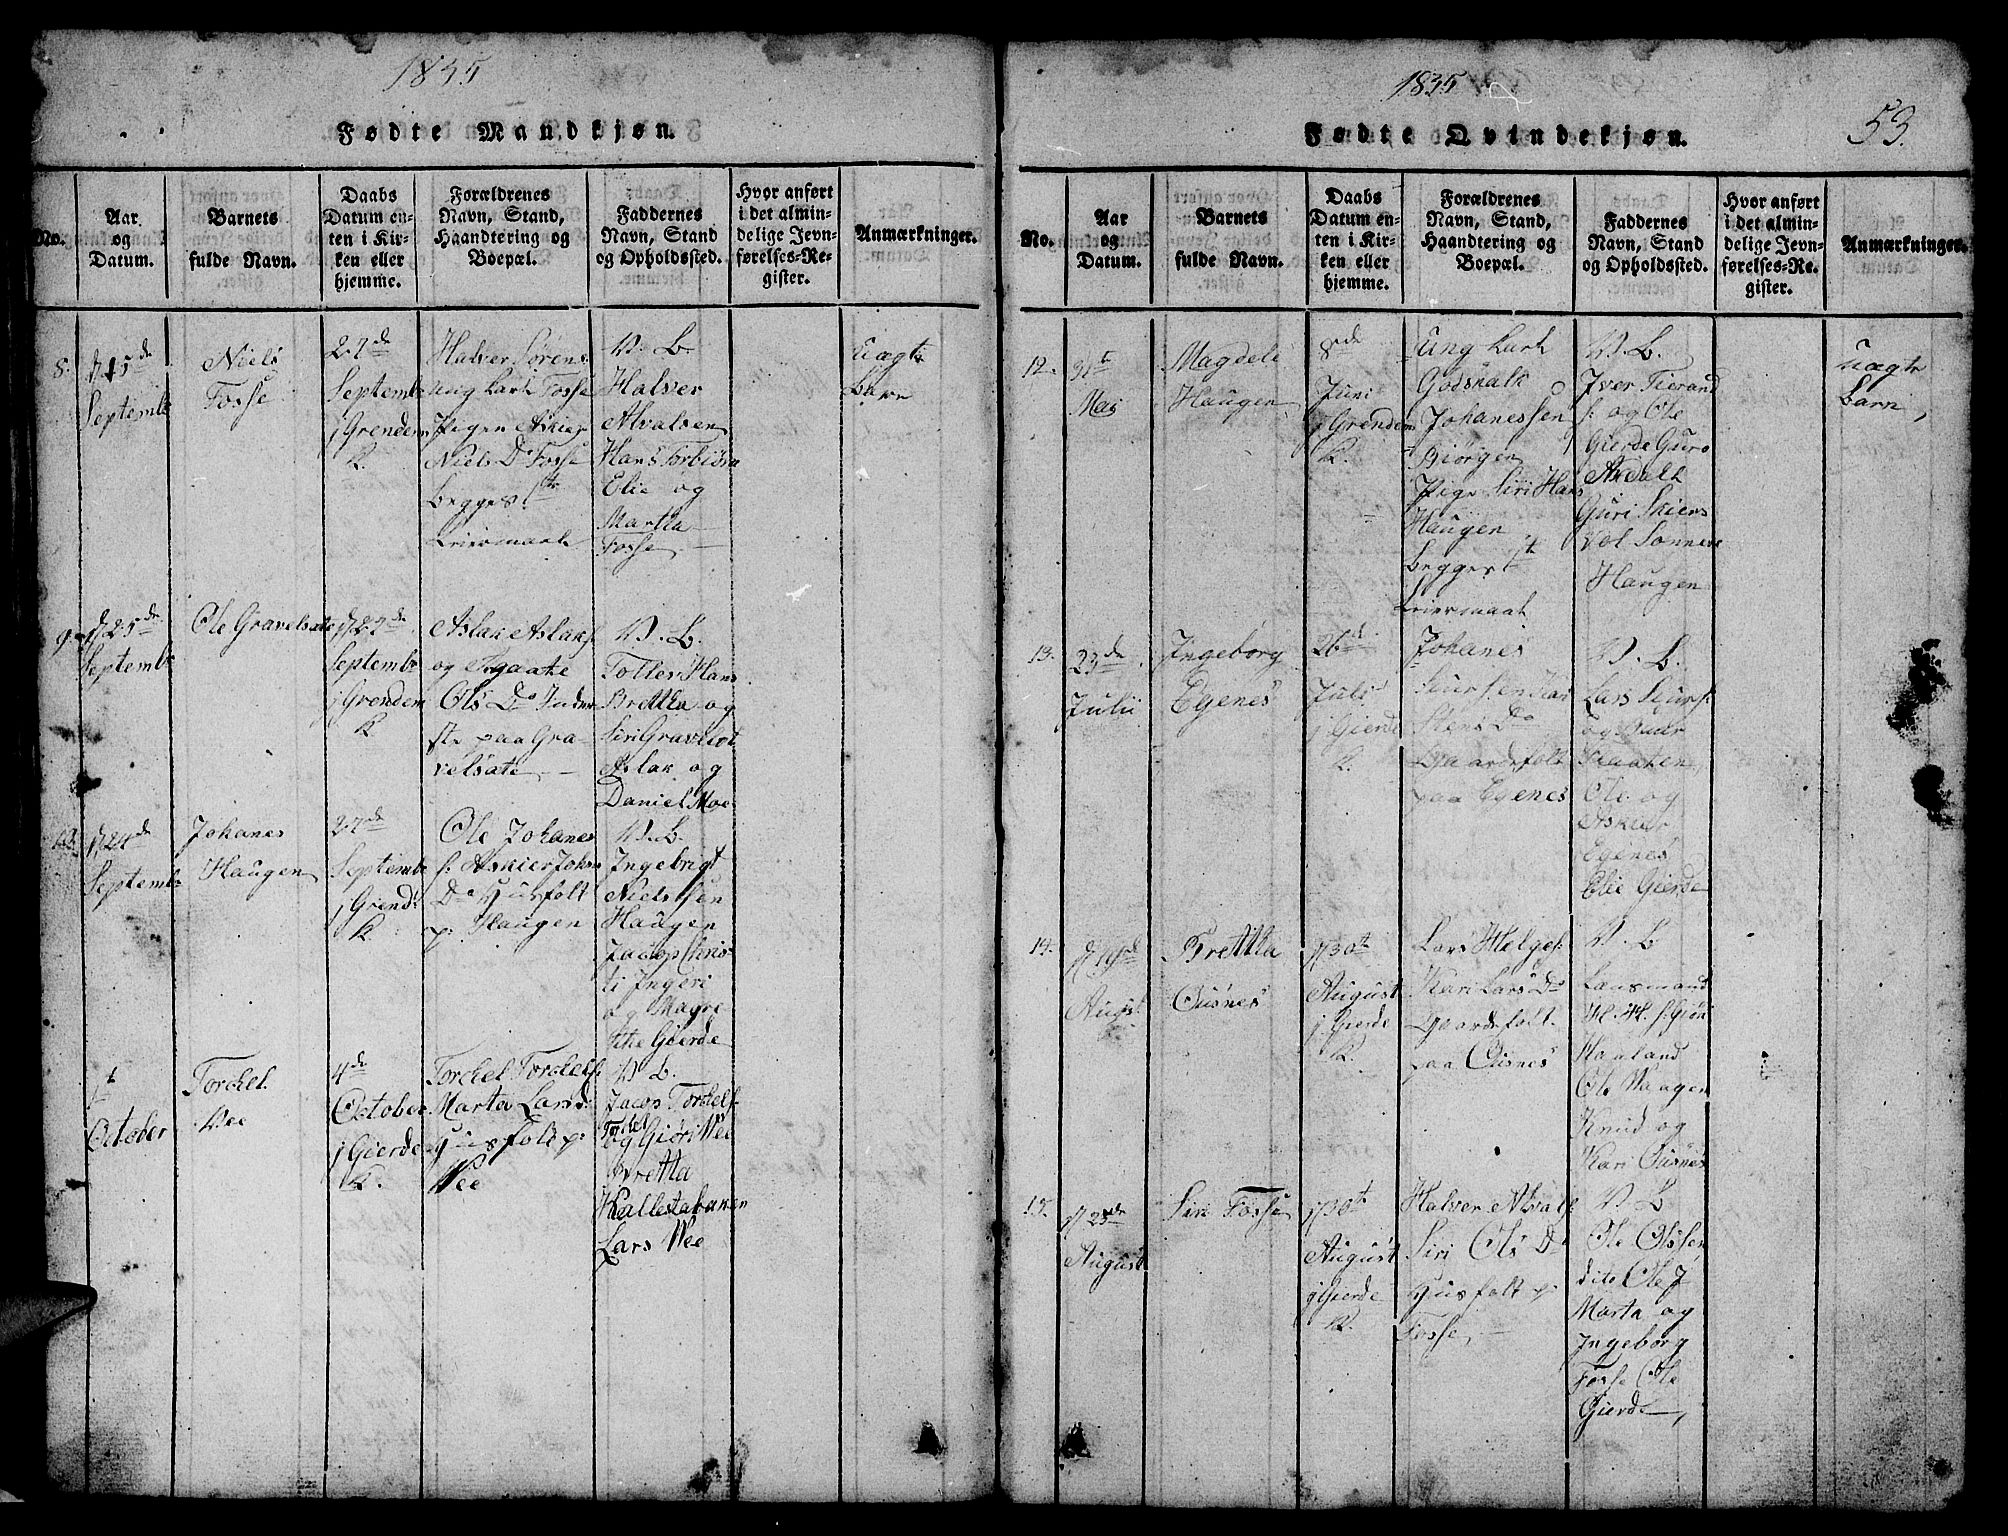 1835
Fødte Mandkjøn.
No.
Aar
og
Datum.
Barnets
fulde Navn.
Daabs
Datum en-
ten i Kir-
ken eller
hjemme.
Forældrenes
Navn, Stand,
Haandtering og
Boepæl.
Faddernes
Navn, Stand
og Opholdssted.
Hvor anført
i det almin-
delige Jevn-
førelses-Re-
gister.
Anmærkninger.
8.
15de
Septemb
Niels
Fosse
27de
Septembr
j Grendem
K.
Halver Sørens
ung karl Fosse
Pigen
Niels Do Fosse
begges
Leiermaal
V. L.
Halver
Alvalsen
Hans Torbiøra
Elie og
Martha
Fosse
uægte
barn
9
25de
Septemb
Ole Gravelsate
27de
Septembr
j Grendem
K
Aslak Aslaks
og Aagaate
Ols Do Inder
ste paa Gra-
velsate
V. L.
Tollev Hans
Brettha og
Siri Gravelsat
Aslak og
Daniel Moe
10.
24de
Septemb
Johanes
Haugen
27de
Septembr
j Grend
K.
Ole Johanes
s: Askier Johs
Do Husfolt
p: Haugen
V. L.
Ingebrigt
Nielssen
Haugen
Jacop Chris-
ti Ingeri
og Magre
the Gierde
1t
October
Torchel
Vee
4de
October
j Gierde
K.
Torchel Torchels:
Marta Lars D
Husfolt p:
Vee
V L.
Jacop Torchels
Torchel
og Giøri Vee
Brettha
Kallestabaken
Lars Vee
1835
53.
Fødte Qvindekjøn.
No.
Aar
og
Datum.
Barnets
fulde Navn.
Daabs
Datum en-
ten i Kir-
ken eller
hjemme.
Forældrenes
Navn, Stand,
Haandtering og
Boepæl.
Faddernes
Navn, Stand
og Opholdssted.
Hvor anført
i det almin-
delige Jevn-
førelses-Re-
gister.
Anmærkninger.
12.
31t
Maj
Magdeli
Haugen
8de
Juni
j Grendem
K.
Ung karl
Godskalk
Johanessen
Biørgen
Pige Siri Hans
Haugen
begges
Leiermaal
V. L.
Iver Tierand
s: og Ole
Gierde Guro
Ardalt
Guri Skiers
vol Sonneve
Haugen
uægte
barn,
13.
23de
Julii
Ingeborg
Egenes
26de
Juli
j Gierde
K.
Johanes
Siursen Kari
Stens Do
Gaardsfolt
paa Egenes
V. L.
Lars Siurs
og Guur
Skaaten
Ole og
Askier
Egenes
Elie Gierde
14.
19de
August
Brettha
Ousnes
30t
August
j Gierde
K.
Lars Helges:
Kari Lars Do
Gaardsfolt
paa Ousnes
V. L
Lansmand
H. H. s: Giøri
Haaland
Ole Vaagen
Knud og
Kari Ousnes
15.
23de
August
Siri Fosse
30t
August
j Gierde
K.
Halver Alvals
Siri Ols D
Husfolt p:
Fosse
V. L
Ole Olssen
dito Ole J
Marta og
Ingeborg
Fosse Ole
Gierde,